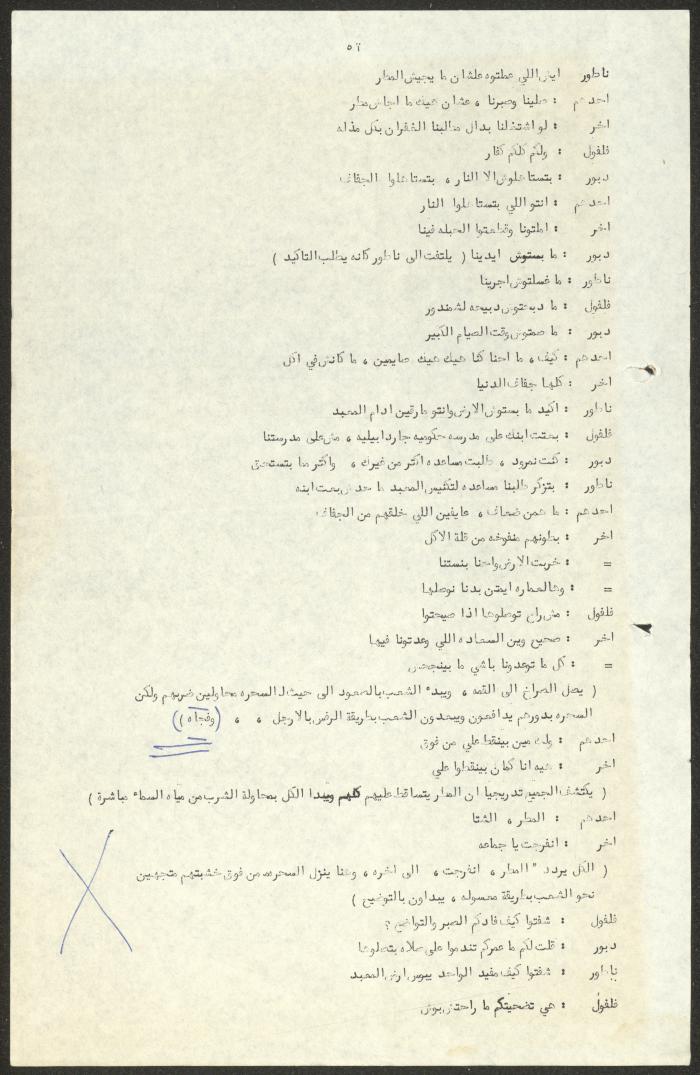 ٥٦
ناطور ايش اللي عملتوه علشان ما يجيش المطر
احدهم : صلينا وصبرنا ، عشان هيك ما اجاش مطر
اخر : لو اشتغلنا بدال مطالبنا الغفران بكل مذله
فلفول : ولكم كلكم كفار
دبور : بتستاهلوش الا النار ، بتستاهلوا الجفاف
احدهم : انتو اللي بتستاهلوا النار
اخر : اهلتونا وقطعتوا الحيله فينا
دبور : ما بستوش ايدينا ( يلتفت الى ناطور كانه يطلب التاكيد )
ناطور : ما غسلتوش اجرينا
فلفول : ما دبحتوش دبيحه لشمندور
دبور : ما صمتوش وقت الصيام الكبير
احدهم : كيف ، ما احنا كنا هيك هيك صايمين ، ما كانش في اكل
اخر : كلها جفاف الدنيا
ناطور : اكيد ما بستوش الارض وانتو مارقين ادام المعبد
فلفول : بعتت ابنك على مدرسه حكوميه جاردابيليه ، مش على مدرستنا
دبور : كنت نمرود ، طلبت مساعده اكتر من غيرك ، واكتر مما بتستحق
ناطور : بتزكر طلبنا مساعده لتكنيس المعبد ما حدش بعت ابنه
احدهم : ما همن ضعاف ، عايفين اللي خلقهم من الجفاف
اخر : بطونهم منفوخه من قلة الاكل
= : خربت الارض واحنا بنستنا
= : وهالعماره ايمتن بدنا نوصلها
فلفول : مش راح توصلوها اذا صيحتوا
اخر : صحيح وين السعاده اللي وعدتونا فيها
= : كل ما توعدونا باشي ما بينجحش
( يصل الصراخ الى القمه ، ويبدء الشعب بالصعود الى حيث السحره محاولين ضربهم ولكن
السحره بدورهم يدافعون ويبعدون الشعب بطريقة الرفس بالارجل ، ، (وفجاه)
احدهم : ولك مين بينقط علي من فوق
اخر : هيه انا كمان بينقطوا علي
( يكتشف الجميع تدريجيا ان المطر يتساقط عليهم كلهم ويبدا الكل بمحاولة الشرب من مياه السماء مباشرة )
احدهم : المطر ، الشتا
اخر : انفرجت يا جماعه
( الكل يردد " المطر ، انفرجت ، الى اخره ، وهنا ينزل السحره من فوق خشبتهم متجهين
نحو الشعب بطريقة معسوله ، يبداون بالتوضيح )
فلفول : شفتوا كيف فادكم الصبر والتواضع ؟
دبور : قلت لكم ما عمركم تندموا على صلاه بتصلوها
ناطور : شفتوا كيف مفيد الواحد يبوس ارض المعبد
فلفول : هي تضحيتكم ما راحتش بوش